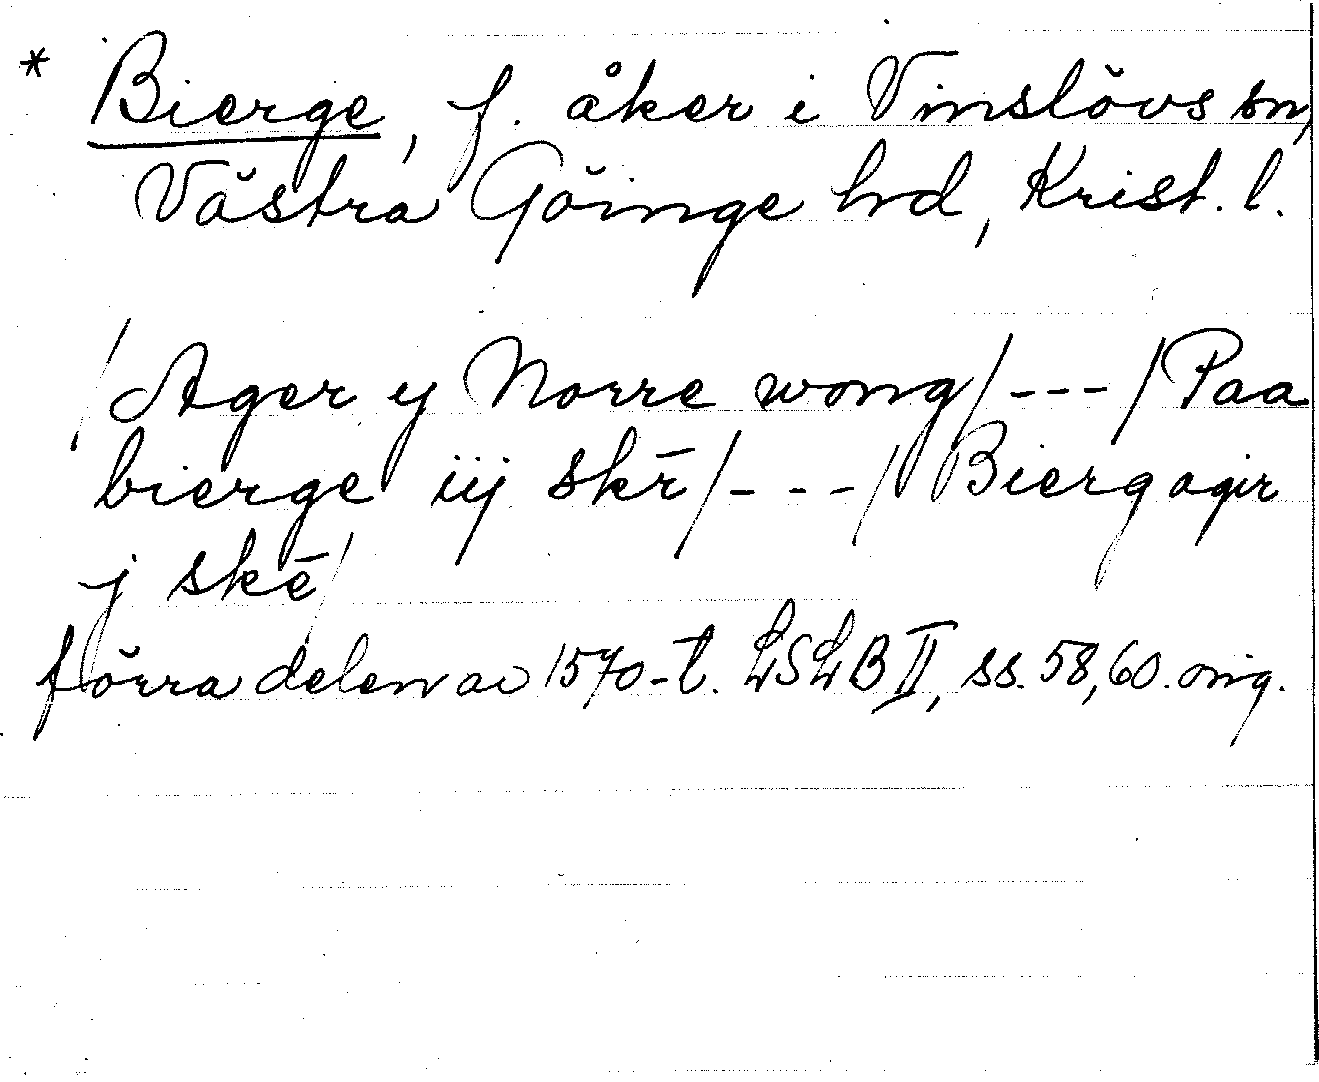 * Bierge, f. åker i Vinslövs sn,
Västra Göinge hd, Krist. l.
/Ager ij Norre wong/---/Paa
bierge iij skē/---/Bierg agir
j skē/
förra delen av 1570-t. LSLB II, ss. 58, 60. orig.